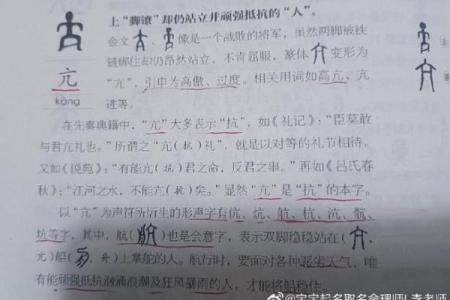 上“脚镣”却仍站立并顽强抵抗的“人”。
金文、像是一个战败的将军，虽然两脚被铁
链绑住却仍昂然站立，不肯屈服，篆体变形为
“亢”，引申为高傲、过度。相关用词如高亢、亢
进等。
亢
kàng
在先秦典籍中，“亢”大多表示“抗”，如《礼记》：“臣莫敢
与君亢礼也。”所谓之“亢（抗）礼”，就是以对等的礼节相待。
又如《说苑》：“有能亢（抗）君之命，反君之事。”再如《吕氏春
秋》：“江河之水，不能亢（抗）矣。”显然“亢”是“抗”的本字。
以“亢”为声符所衍生的形声字有伉、炕、航、杭、沆、骯、
坑等字，其中，航（）也是会意字，表示双脚稳稳站在（
亢）艇（）上掌舵的人。航行时，要面对各种恶劣天气，唯
有能顽强抵抗汹涌浪潮及狂风暴雨的人，才能将船稳住。
@宝宝起名取名命理师L李老师